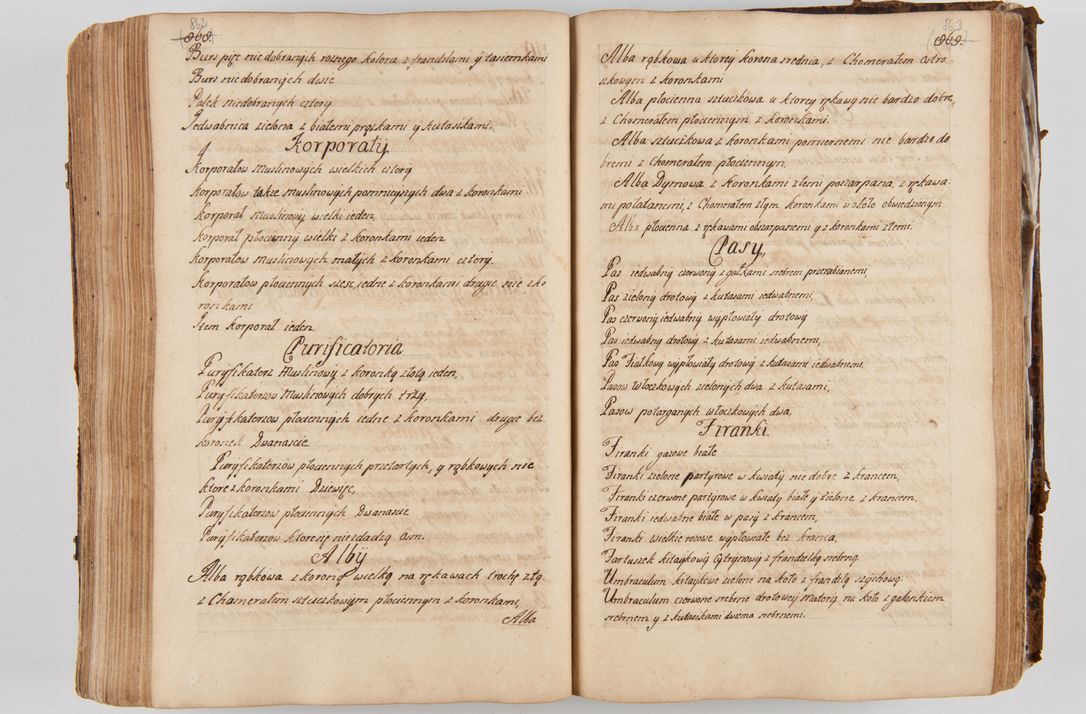 862
868.
Burs pięc nie dobranych roznego koloru z frandzlami y tasiemkami
Burs nie dobranych dwie
Palek niedobranych cztery
Jedwabnica zielona z białemi prązkami y kutasikami.
Korporały
Korporałow Muslinowych wielkich cztery
Korporałow także muslinowych pomnieyszych dwa z koronkami
Korporał Muslinowy wielki ieden,
Korporał płocienny wielki z koronkami ieden
Korporałow muslinowych małych z koronkami cztery
Korporałow płociennych szesc, iedne z koronkami drugie nie z ko
ronkami
Item Korporał ieden
Purificatoria
Puryfikaterz Muslinowy z koronką złotą ieden,
Puryfikaterzow Muslinowych dobrych trzy,
Puryfikaterzow płociennych iedne z koronkami drugie bez
koronek Dwanascie
Puryfikaterzow płociennych przetartych, y rąbkowych nie
ktore z koronkami Dziewięc,
Puryfikaterzow płociennych Dwanascie
Puryfikaterzow ktoresię niezdadzą osm.
Alby
Alba rąbkowa z koroną wielką na rękawach trochę złą
z Chamerałem sztuczkowym płociennym z koronkami,
Alba
863
869.
Alba rąbkowa u ktorey korona srednia, z Chomerałem ostro
szkowym z koronkami
Alba płocienna sztuczkowa u ktorey rękawy nie bardzo dobre,
z Chomerałem płociennym z koronkami.
Alba sztuczkowa z koronkami pomiernemi nie bardzo do
bremi z Chomerałem płociennym,
Alba Dymowa z koronkami złemi poszarpana, z rękawa
mi połatanemi, z Chomerałem złym koronkami w około obwiedzionym
Alba płocienna z rękawami obszarpanemi y z koronkami złemi.
Pasy,
Pas iedwabny czerwony z gałkami srebrem przerabianemi,
Pas zielony drotowy z kutasami iedwabnemi,
Pas czerwony iedwabny wypłowiały drotowy
Pas iedwabny drotowy z kutasami iedwabnemi,
Pas Fiałkowy wypłowiały drotowy z kutasami iedwabnemi.
Pasow Włoczkowych zielonych dwa z kutasami,
Pasow potarganych włoczkowych dwa,
Firanki.
Firanki gazowe białe
Firanki zielone partyrowe w kwiaty nie dobre z krancem,
Firanki czerwone partyrowe w kwiaty białe y zielone z krancem,
Firanki iedwabne białe w pasy z krancem,
Firanki wielkie rozowe wypłowiałe bez kranca,
Fartuszek kitaykowy Cytrynowy z frandzelką srebrną.
Umbraculum kitaykowe zielone na koło z frandzlą szychową.
Umbraculum czerwone srebrne drotowey materyi na koło z galonkiem
srebrnem y z kutasikami dwiema srebrnemi.